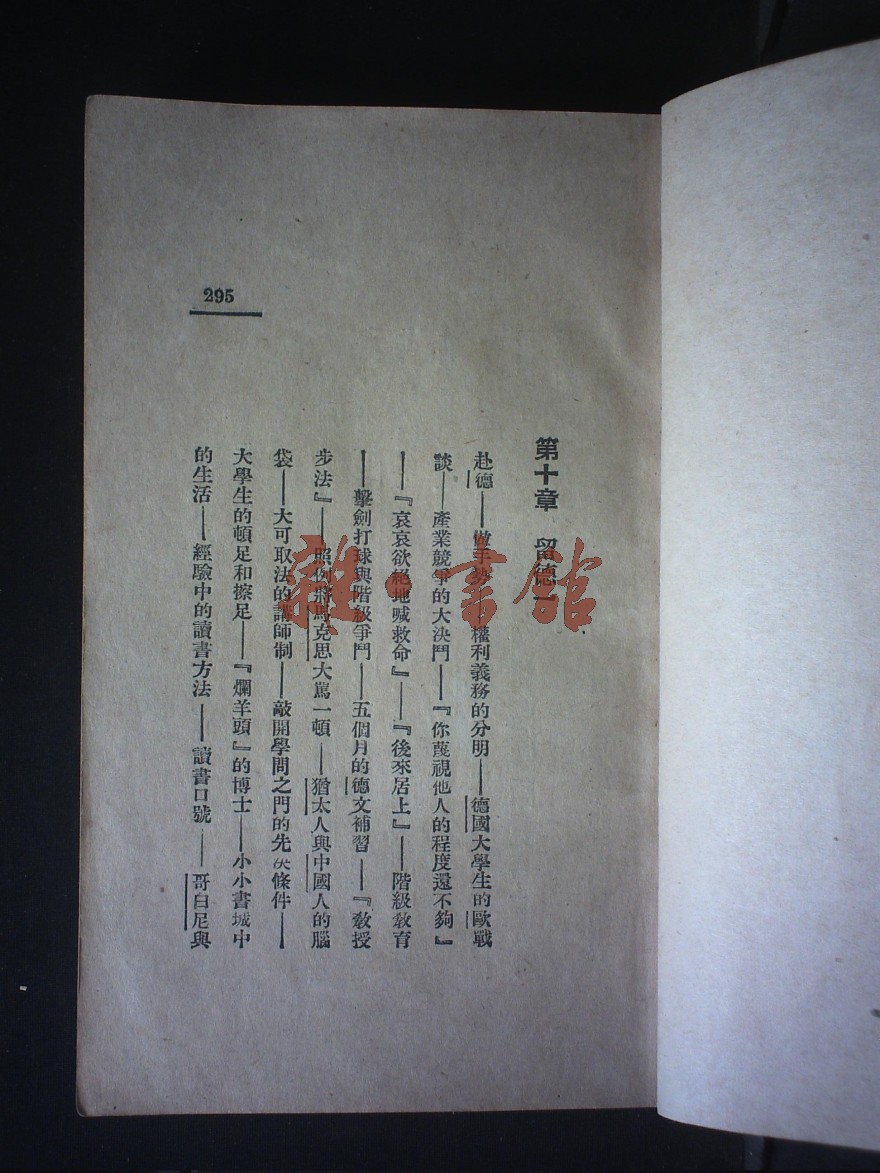 第十章　留德一
赴德——做手勢——權利義務的分明——德國大學生的歐戰
談——產業競爭的大決鬥——『你蔑視他人的程度還不夠』
——『哀哀欲絕地喊救命』——『後來居上』——階級教育
——擊劍打球與階級爭鬥——五個月的德文補習——『教授
步法』——照例將馬克思大罵一頓——猶太人與中國人的腦
袋——大可取法的講師制——敲開學問之門的先決條件——
大學生的頓足和擦足——『爛羊頭』的博士——小小書城中
的生活——經驗中的讀書方法——讀書口號——哥白尼與
295
雜·書館